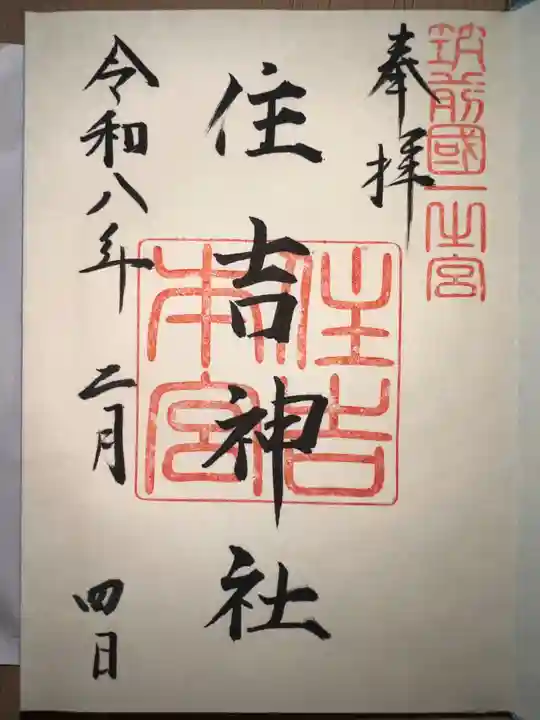 筑前國一之宮
奉拝
住吉神社
住吉本宮
令和八年 二月 四日